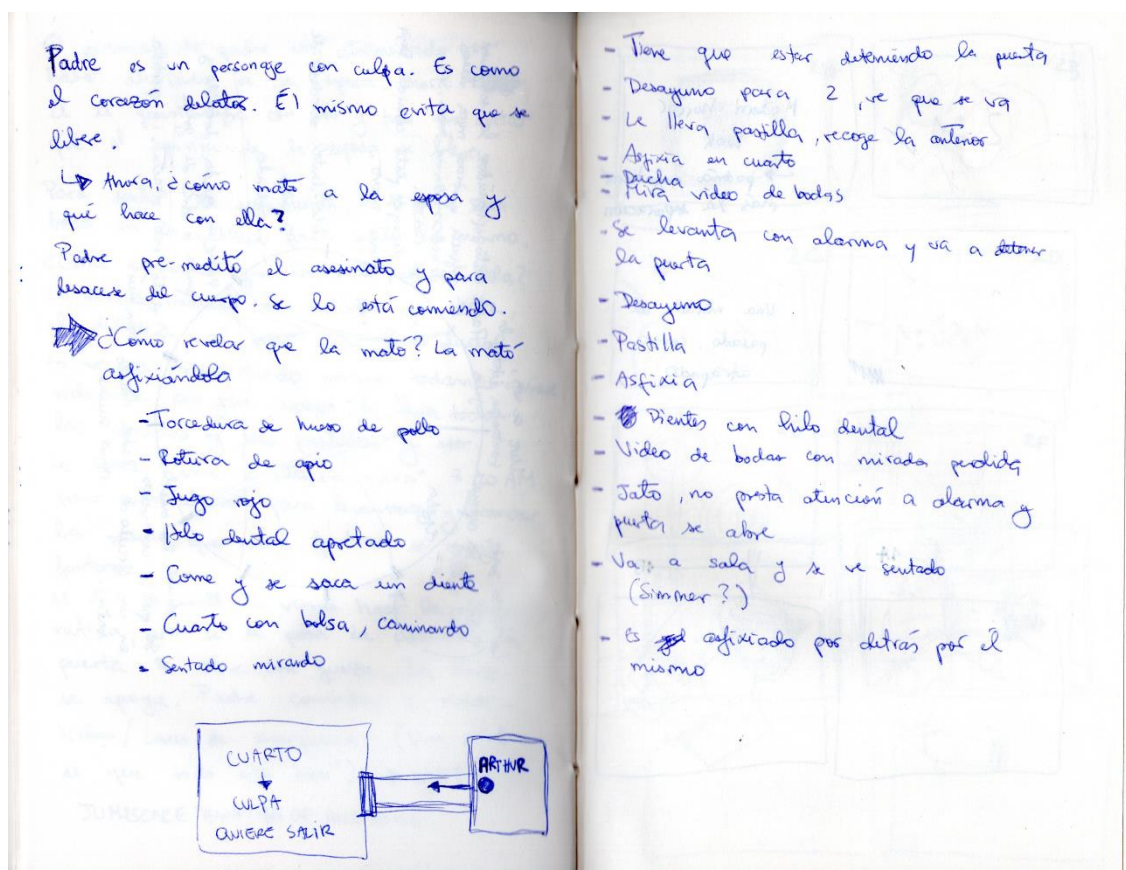 Padre es un personaje con culpa. Es como
el corazón delator. Él mismo evita que se
libere.
↳ Ahora, ¿cómo mató a la esposa y
qué hace con ella?
Padre pre-meditó el asesinato y para
desacerse del cuerpo. Se lo está comiendo.
¿Cómo revelar que la mató? La mató
asfixiándola
- Torcedura de hueso de pollo
- Rotura de apio
- Jugo rojo
- Hilo dental apretado
- Come y se saca un diente
- Cuarto con bolsa, caminando
- Sentado mirando
CUARTO
CULPA
QUIERE SALIR
ARTHUR
- Tiene que estar deteniendo la puerta
- Desayuno para 2, ve que se va
- Le lleva pastilla, recoge la anterior
- Asfixia en cuarto
- Ducha
- Mira video de bodas
- Se levanta con alarma y va a detener
la puerta
- Desayuno
- Pastilla
- Asfixia
- Dientes con hilo dental
- Video de bodas con mirada perdida
- Jato, no presta atención a alarma y
puerta se abre
- Va a sala y se ve sentado
(Simmer?)
- Es asfixiado por detrás por él
mismo